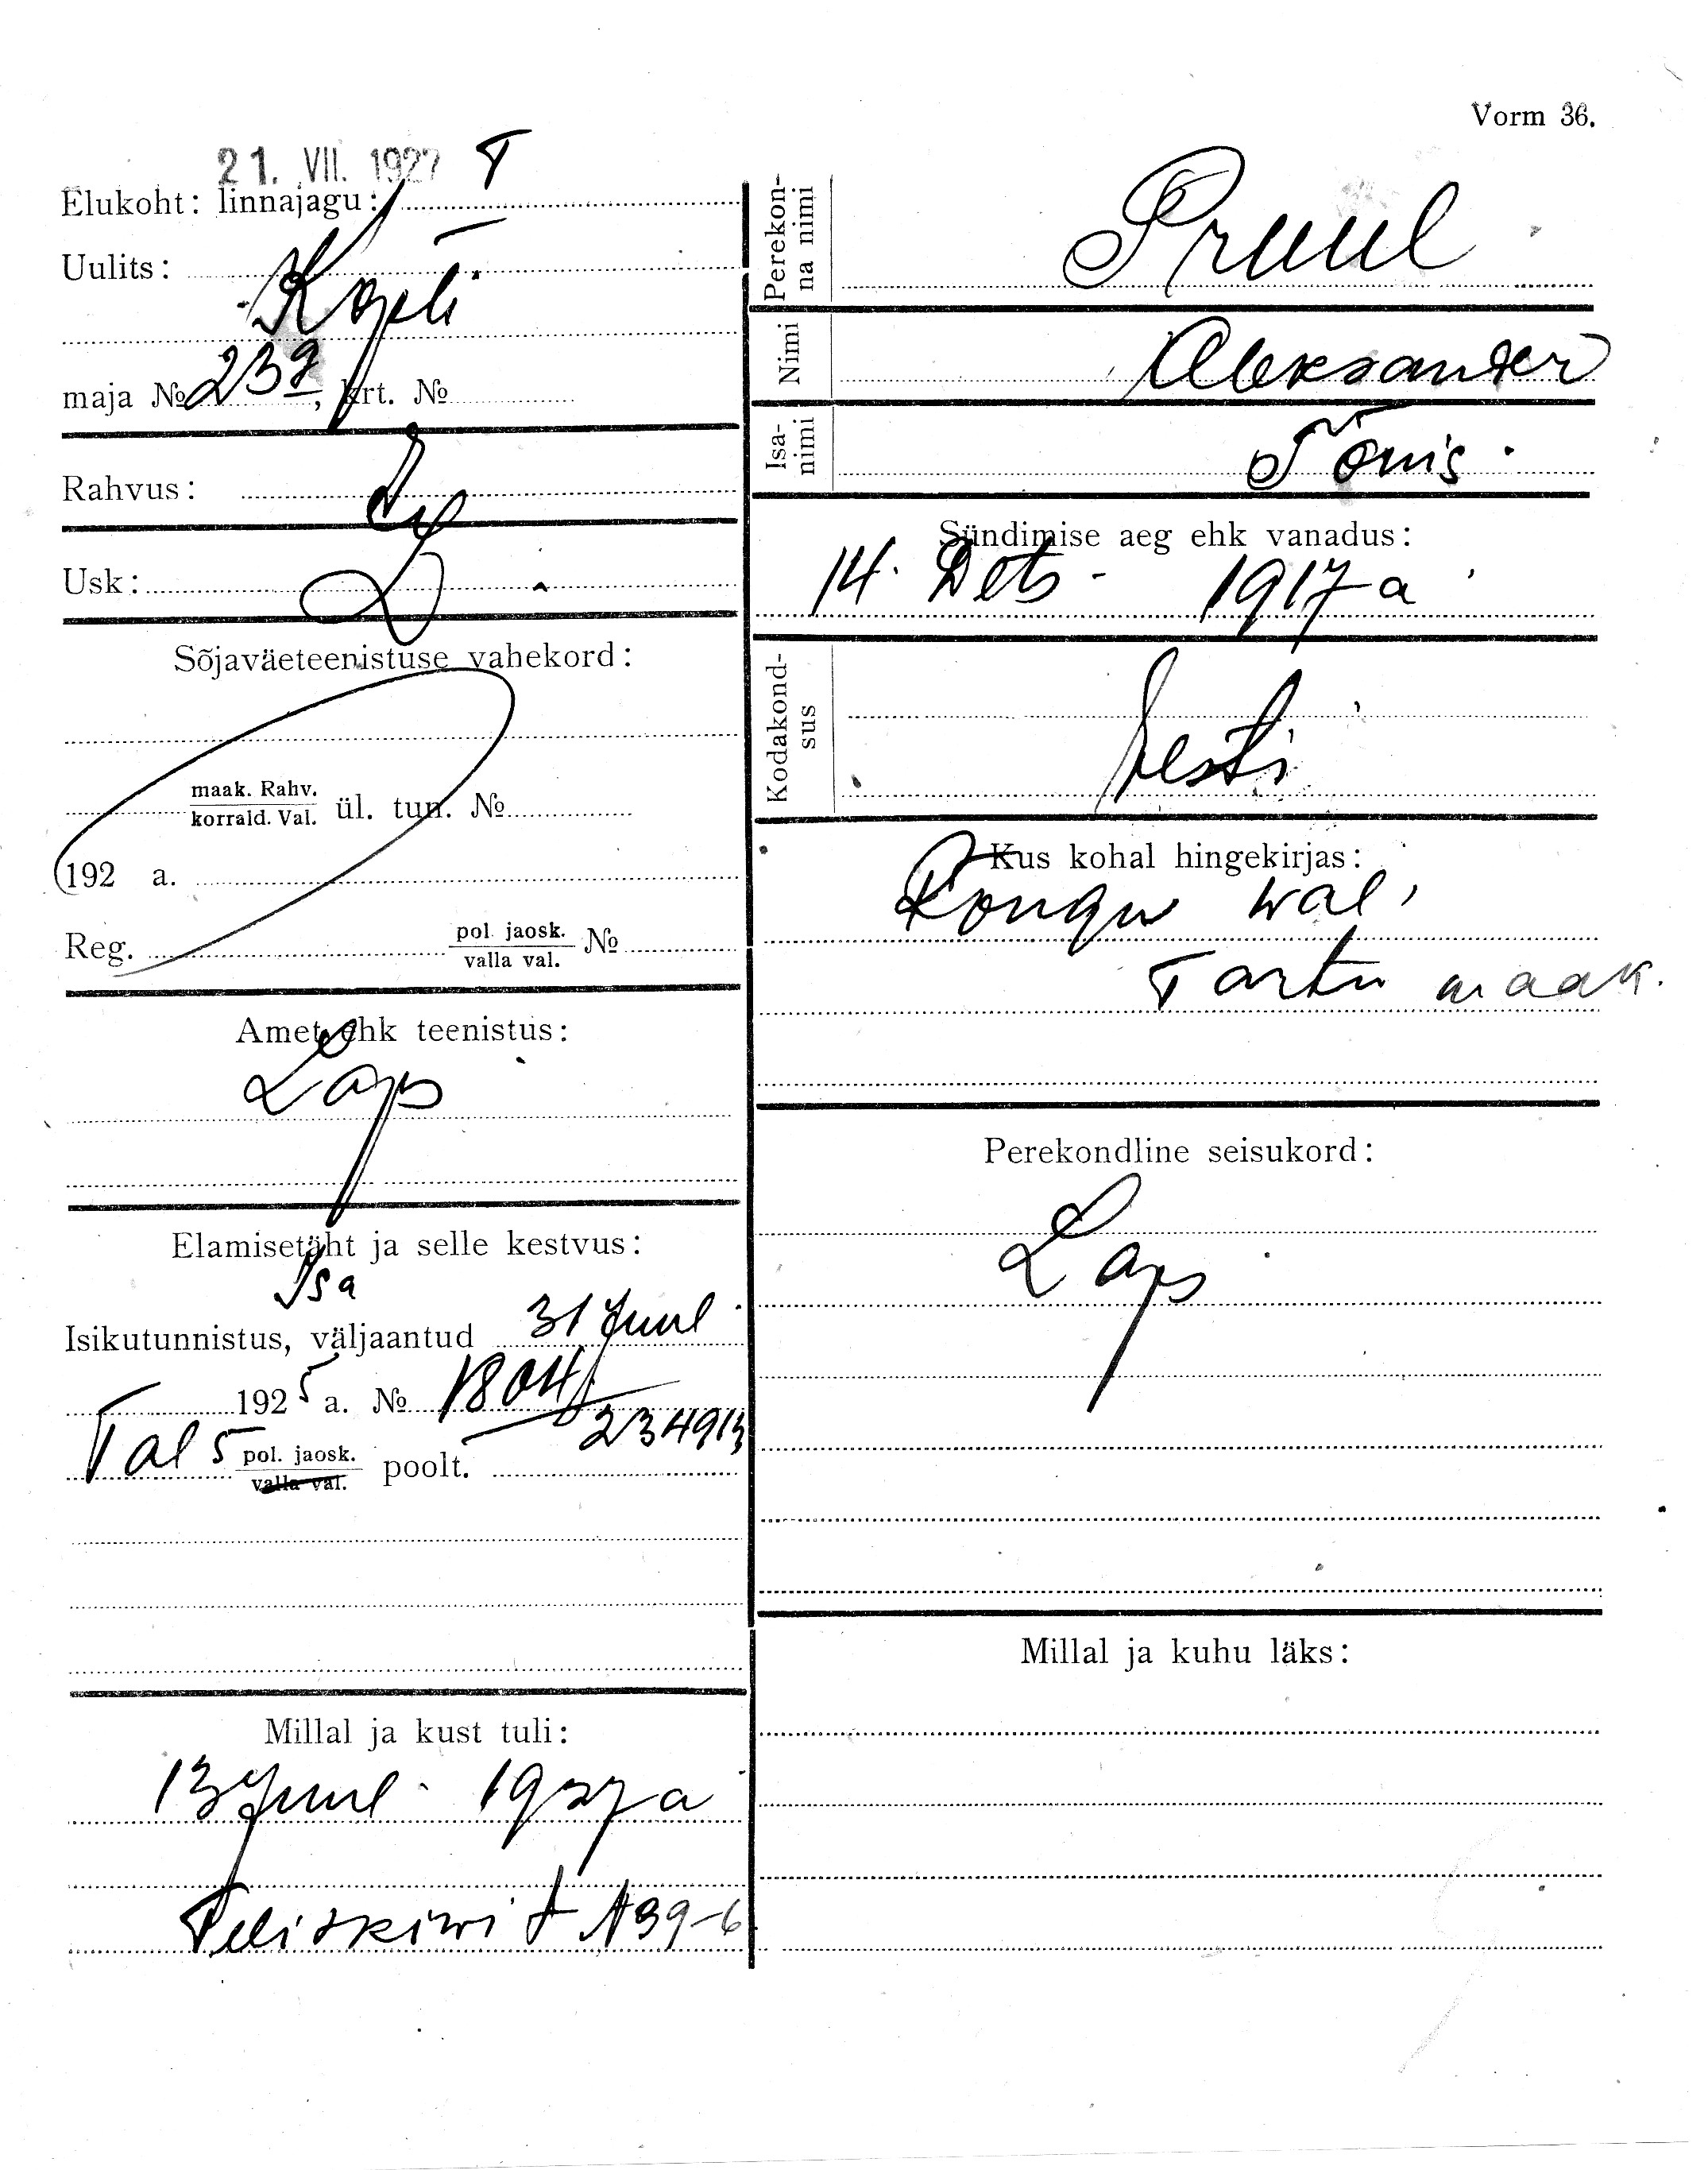 Vorm 36.
21. VII. 1927 T
Elukoht: linnajagu:
Uulits:
Kopli
maja № 23a, krt. №
Rahvus:
Usk: L
Sõjaväeteenistuse vahekord:
maak. Rahv.
korrald. Val. ül. tun. №
192 a.
Reg. pol. jaosk. №
valla val.
Amet ehk teenistus:
Laps
Elamisetäht ja selle kestvus:
Isa
Isikutunnistus, väljaantud 31 Juul
1925 a. № 1804/
234913
Tal 5 pol. jaosk. poolt.
valla val.
Millal ja kust tuli:
13 Juul 1927 a
Teliskiwi t N39-6
Perekonna nimi
Pruul
Nimi
Aleksander
Isanimi
Tõnis.
Sündimise aeg ehk vanadus:
14. Dets - 1917 a
Kodakondsus
Eesti
Kus kohal hingekirjas:
Rongu wal,
Tartu maak.
Perekondline seisukord:
Laps
Millal ja kuhu läks: